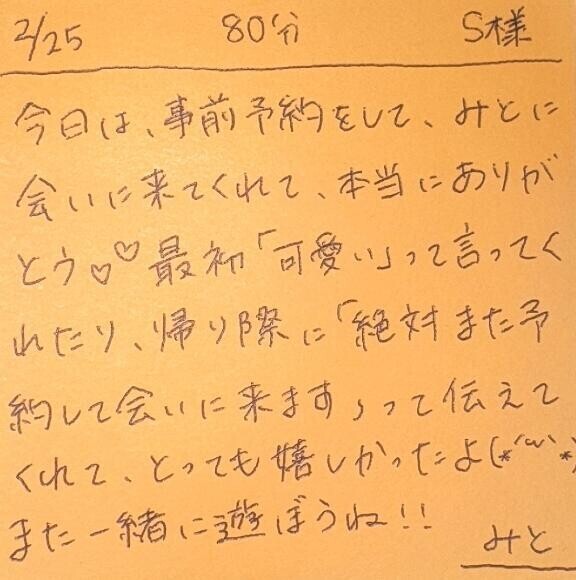 2/25 80分 S様
今日は、事前予約をして、みとに
会いに来てくれて、本当にありが
とう♡♡最初「可愛い」って言ってく
れたり、帰り際に「絶対また予
約して会いに来ます」って伝えて
くれて、とっても嬉しかったよ(*´ω`*)
また一緒に遊ぼうね!!
みと